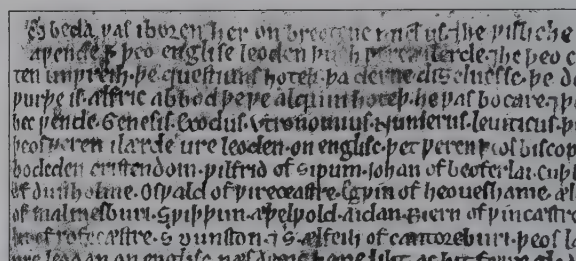 S beda ƿas iboren her on breotene mid us. ⁊ he ƿisliche
aƿende þ þeo englise leoden þurh ƿeren ilerde. ⁊ he þeo c
ten unƿreih. þe questiuns hoteþ. þa derne diȝelnesse. þe de
ƿurþe is. ælfric abbod þe ƿe alquin hoteþ. he ƿas bocare. ⁊ þ
bec ƿende. Genesis. Exodus. Vtronomius. Numerus. leuiticus. þ
þeos ƿeren ilærde ure leoden on englisc. þet ƿeren þeos biscop
bodeden cristendom. ƿilfrid of ripum. iohan of beoferlai. cuþb
of dunholme. Osƿald of ƿireceastre. Egƿin of heoueshame. æl
of malmesburi. Sƿiþþun. æþelƿold. aidan. Biern of ƿincæstre
of rofecæstre. s dunston. ⁊ s. ælfeih of cantoreburi. þeos læ
ure leodan on englisc. næs deorc heore liht. ac hit fæire glod